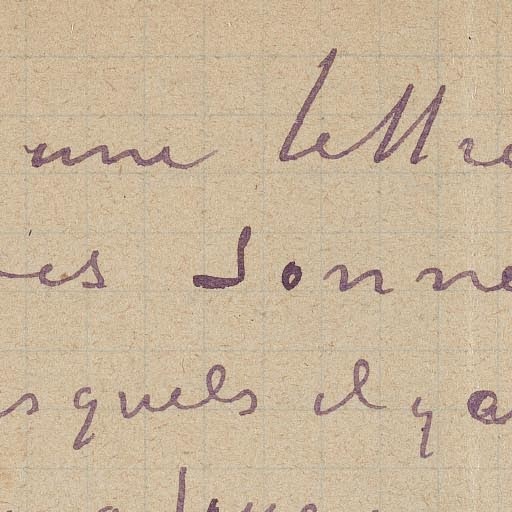 une lettre
es Sonne
squels il y a